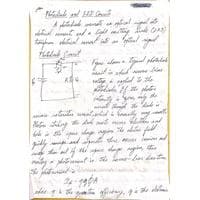 Photodiode and LED Circuits
A photodiode converts an optical signal into
electrical current and a light emitting diode (LED)
transforms electrical current into an optical signal
Photodiode Circuit
Figure shows a typical photodiode
circuit in which reverse bias
voltage is applied to the
photodiode. If the photon
intensity is zero, only the
current through the diode is
reverse saturation current, which is normally very small.
Photons striking the diode create excess electrons and
holes in the space charge region. The electric field
quickly separates and sweeps these excess carriers
out of the space charge region, thus
creating a photocurrent in the reverse-bias direction.
the photocurrent is
where η is the quantum efficiency, q is the electronic